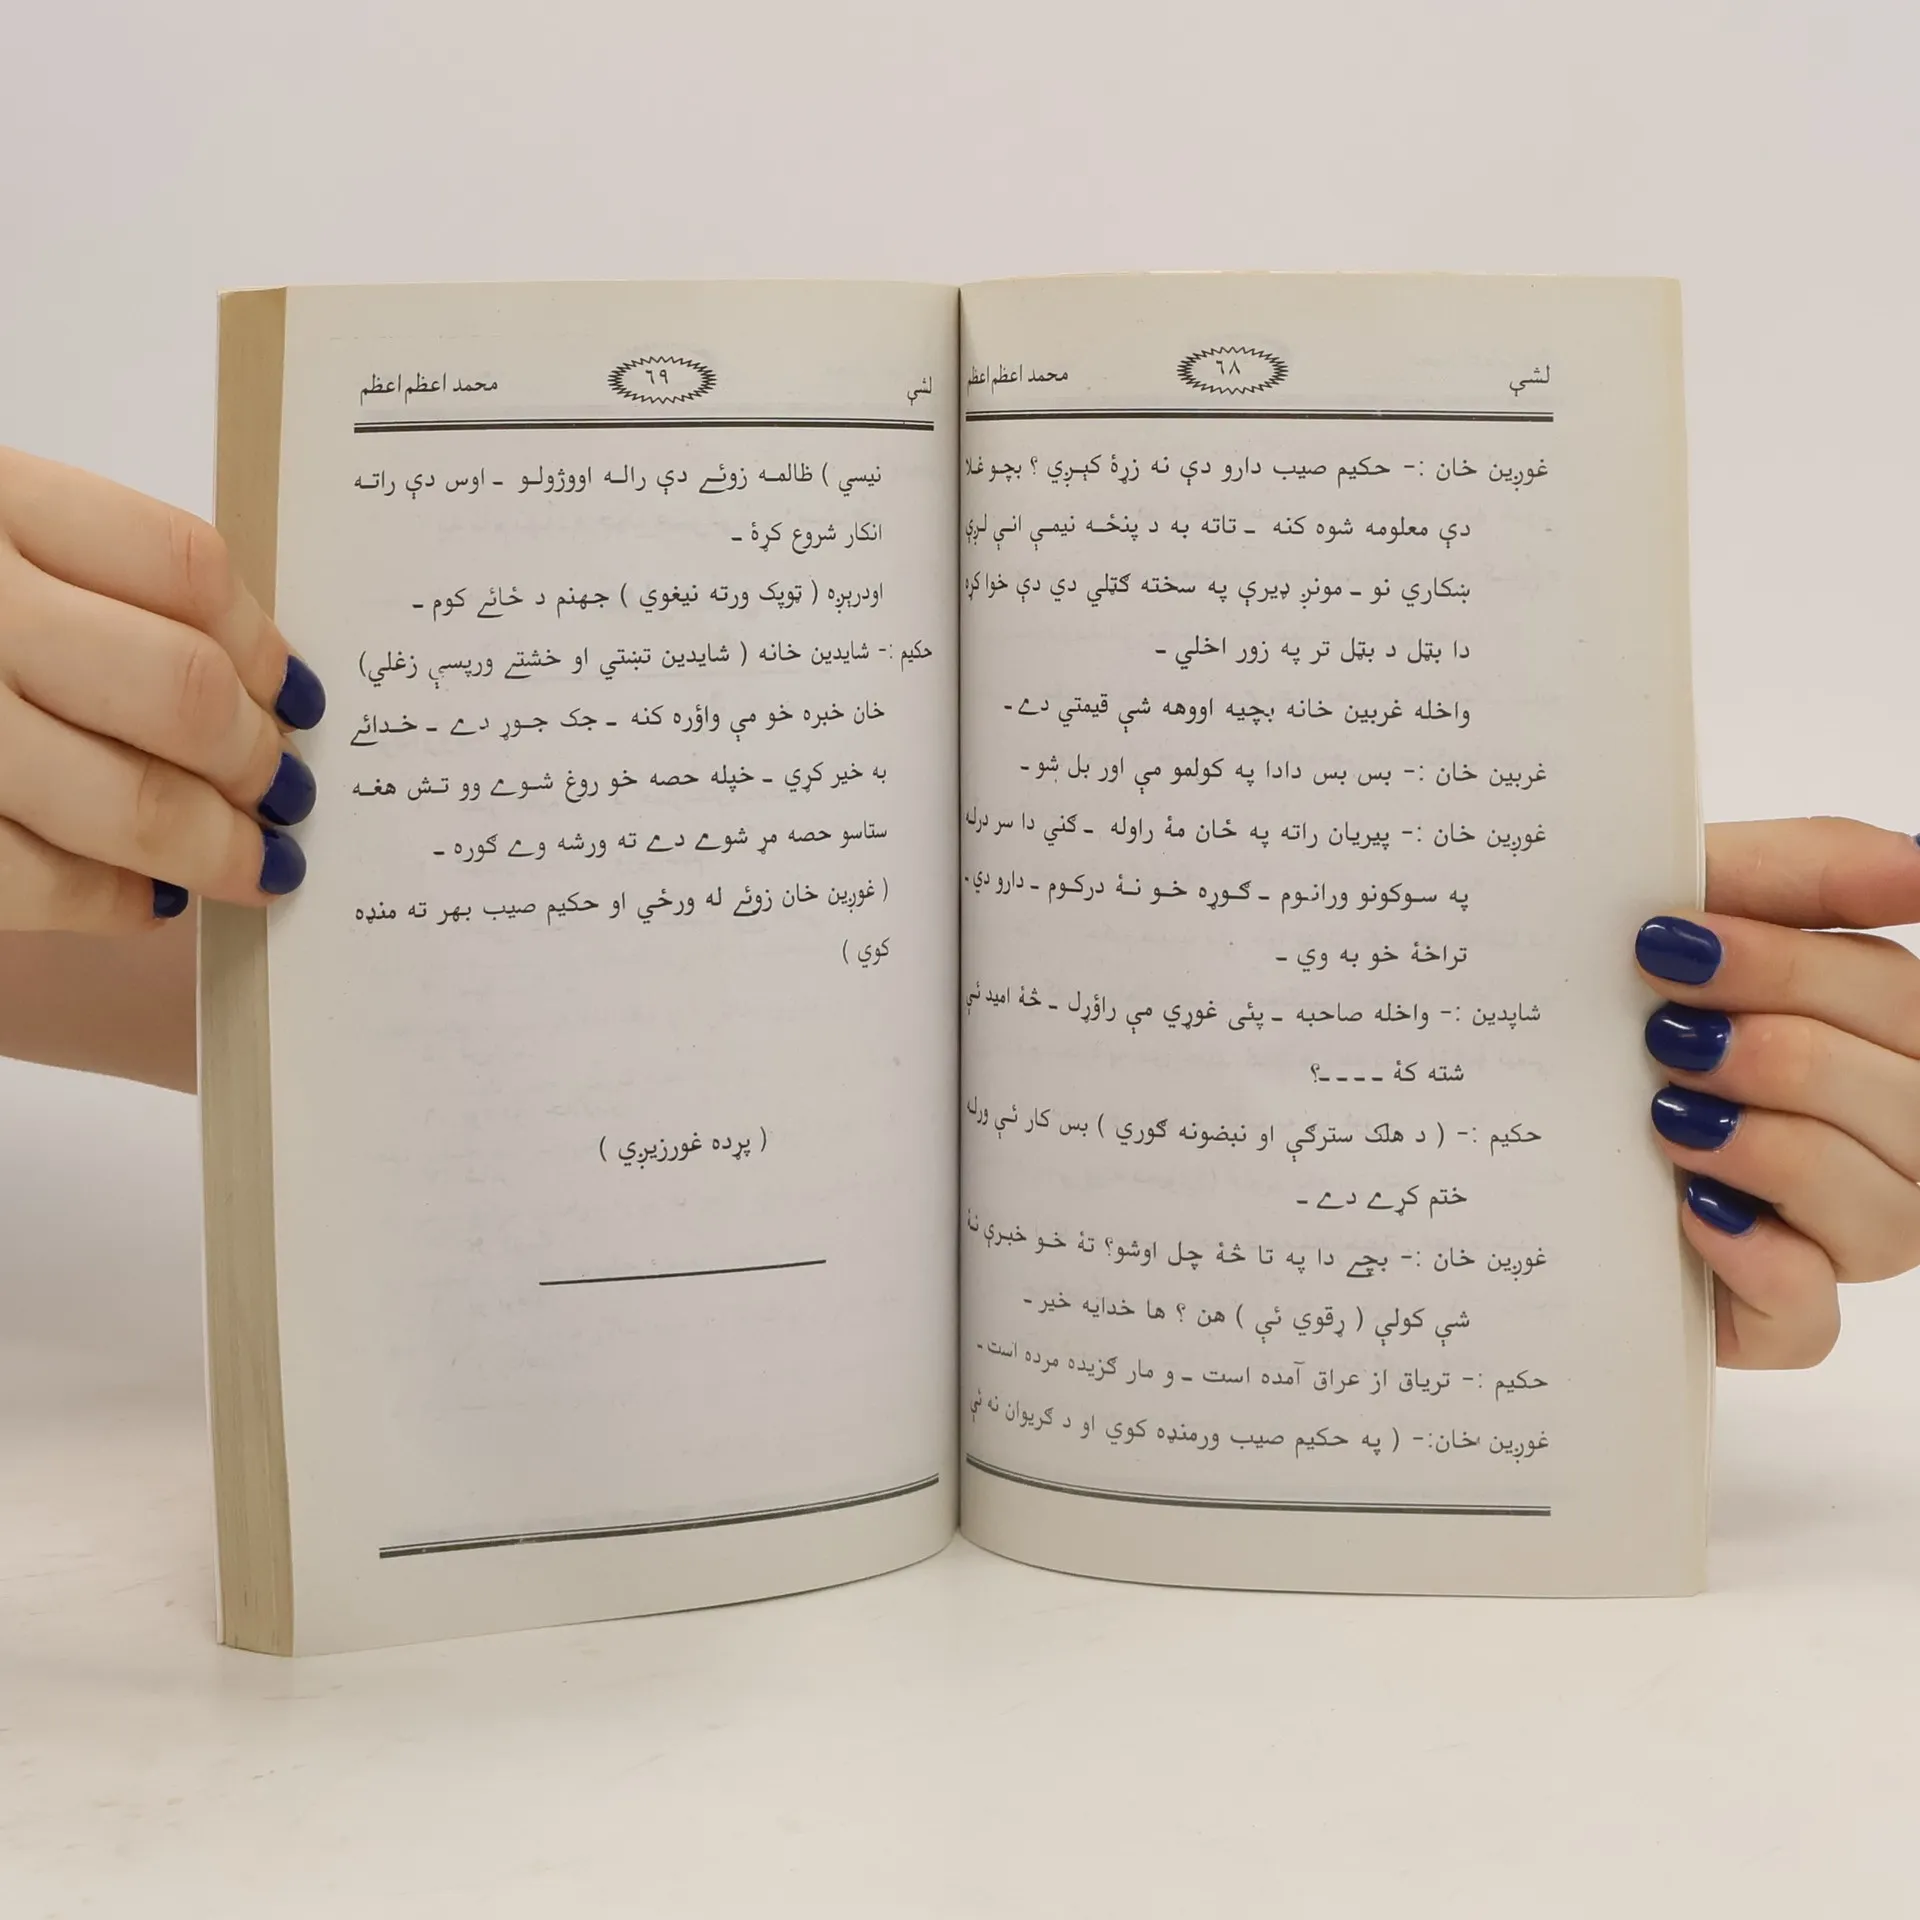 لشې ٦٨ محمد اعظم اعظم
غورِین خان :- حکیم صیب دارو دې نه زړۀ کېږي ؟ بچو غلا
دې معلومه شوه کنه ـ تاته به د پنځـه نیمـې انـې لـږې
ښکاري نو ـ مونږ ډیرې په سخته ګټلي دي دې خوا کړه
دا بټل د بټل تر په زور اخلي ـ
واخله غربین خانه بچیه اووهه شې قیمتي دے ـ
غربین خان :- بس بس دادا په کولمو مې اور بل شو ـ
غورِین خان :- پیریان راته په ځان مۀ راوله ـ ګني دا سر درله
په سـوکونو ورانـوم ـ ګـوره خـو نـۀ درکـوم ـ دارو دي ـ
تراخۀ خو به وي ـ
شاپدین :- واخله صاحبه ـ پئی غوړي مې راؤړل ـ څۀ امید ئې
شته کۀ ـ ـ ـ ـ؟
حکیم :- ( د هلک سترګې او نبضونه ګوري ) بس کار ئې ورله
ختم کړے دے ـ
غورِین خان :- بچے دا په تا څۀ چل اوشو؟ تۀ خـو خبـرې نـۀ
شې کولې ( ړقوي ئې ) هن ؟ ها خدایه خیر ـ
حکیم :- تریاق از عراق آمده است ـ و مار گزیده مرده است ـ
غورِین خان:- ( په حکیم صیب ورمنډه کوي او د ګریوان نه ئې
لشې ٦٩ محمد اعظم اعظم
نیسي ) ظالمـه زوئـے دې رالـه اووژولـو ـ اوس دې راتـه
انکار شروع کړۀ ـ
اودریږه ( ټوپک ورته نیغوي ) جهنم د ځائے کوم ـ
حکیم :- شایدین خانه ( شایدین تښتي او خشتے ورپسې زغلي)
خان خبره خو مې واؤره کنه ـ جک جـوړ دے ـ خـدائے
به خیر کړي ـ خپله حصه خو روغ شـوے وو تـش هغـه
ستاسو حصه مړ شوے دے ته ورشه وے ګوره ـ
( غورِین خان زوئے له ورځي او حکیم صیب بهر ته منډه
کوي )
( پړده غورزیږي )